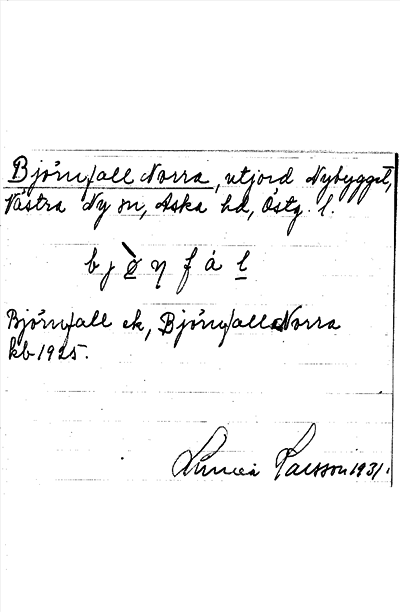 Björnfall Norra, utjord Nybygget,
Västra Ny sn, Aska hd, Östg. l.
b j ö̀ n f å l
Björnfall ek, Björnfall Norra
kb 1925.
Linnea Paulsson 1931.